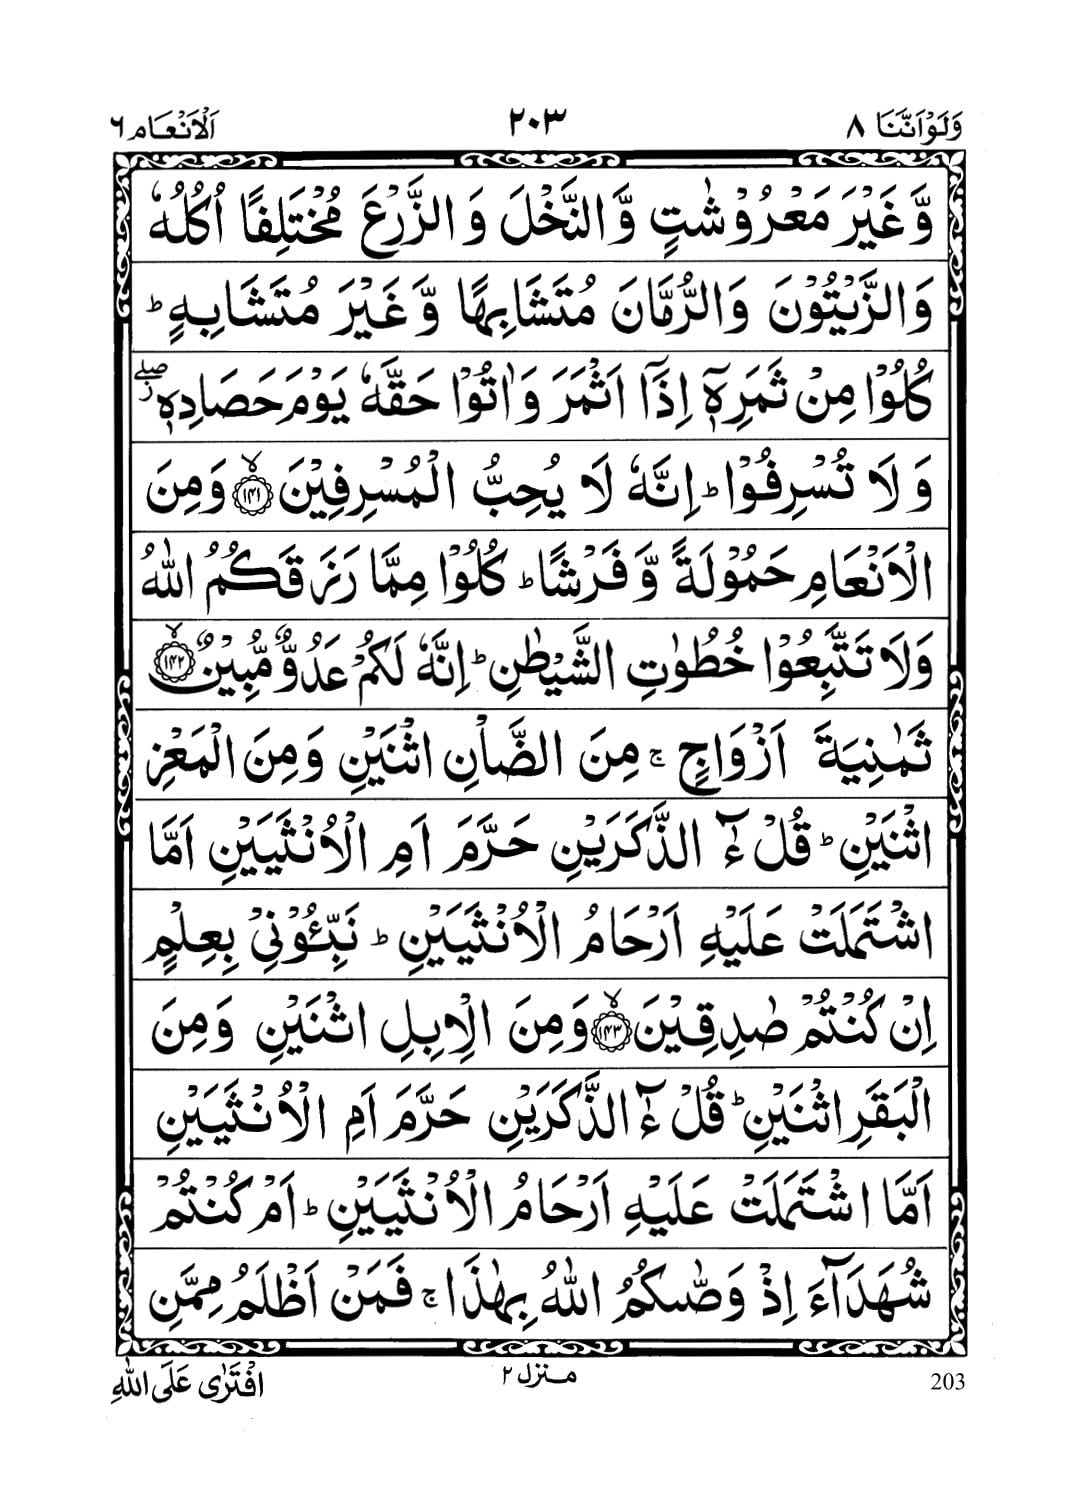 وَلَوْاَنَّنَا ٨
٢٠٣
اَلْاَنْعَام ٦
وَّغَيْرَ مَعْرُوْشٰتٍ وَّالنَّخْلَ وَالزَّرْعَ مُخْتَلِفًا اُكُلُهٗ
وَالزَّيْتُوْنَ وَالرُّمَّانَ مُتَشَابِهًا وَّغَيْرَ مُتَشَابِهٍ ؕ
كُلُوْا مِنْ ثَمَرِهٖۤ اِذَاۤ اَثْمَرَ وَاٰتُوْا حَقَّهٗ يَوْمَ حَصَادِهٖ ۖز
وَلَا تُسْرِفُوْا ؕ اِنَّهٗ لَا يُحِبُّ الْمُسْرِفِيْنَ ۙ﴿۱۴۱﴾ وَمِنَ
الْاَنْعَامِ حَمُوْلَةً وَّفَرْشًا ؕ كُلُوْا مِمَّا رَزَقَكُمُ اللّٰهُ
وَلَا تَتَّبِعُوْا خُطُوٰتِ الشَّيْطٰنِ ؕ اِنَّهٗ لَكُمْ عَدُوٌّ مُّبِيْنٌ ۙ﴿۱۴۲﴾
ثَمٰنِيَةَ اَزْوَاجٍ ۚ مِنَ الضَّاْنِ اثْنَيْنِ وَمِنَ الْمَعْزِ
اثْنَيْنِ ؕ قُلْ ءٰٓالذَّكَرَيْنِ حَرَّمَ اَمِ الْاُنْثَيَيْنِ اَمَّا
اشْتَمَلَتْ عَلَيْهِ اَرْحَامُ الْاُنْثَيَيْنِ ؕ نَبِّـُٔوْنِيْ بِعِلْمٍ
اِنْ كُنْتُمْ صٰدِقِيْنَ ۙ﴿۱۴۳﴾ وَمِنَ الْاِبِلِ اثْنَيْنِ وَمِنَ
الْبَقَرِ اثْنَيْنِ ؕ قُلْ ءٰٓالذَّكَرَيْنِ حَرَّمَ اَمِ الْاُنْثَيَيْنِ
اَمَّا اشْتَمَلَتْ عَلَيْهِ اَرْحَامُ الْاُنْثَيَيْنِ ؕ اَمْ كُنْتُمْ
شُهَدَآءَ اِذْ وَصّٰىكُمُ اللّٰهُ بِهٰذَا ۚ فَمَنْ اَظْلَمُ مِمَّنِ
203
منزل ٢
افْتَرٰى عَلَى اللّٰهِ